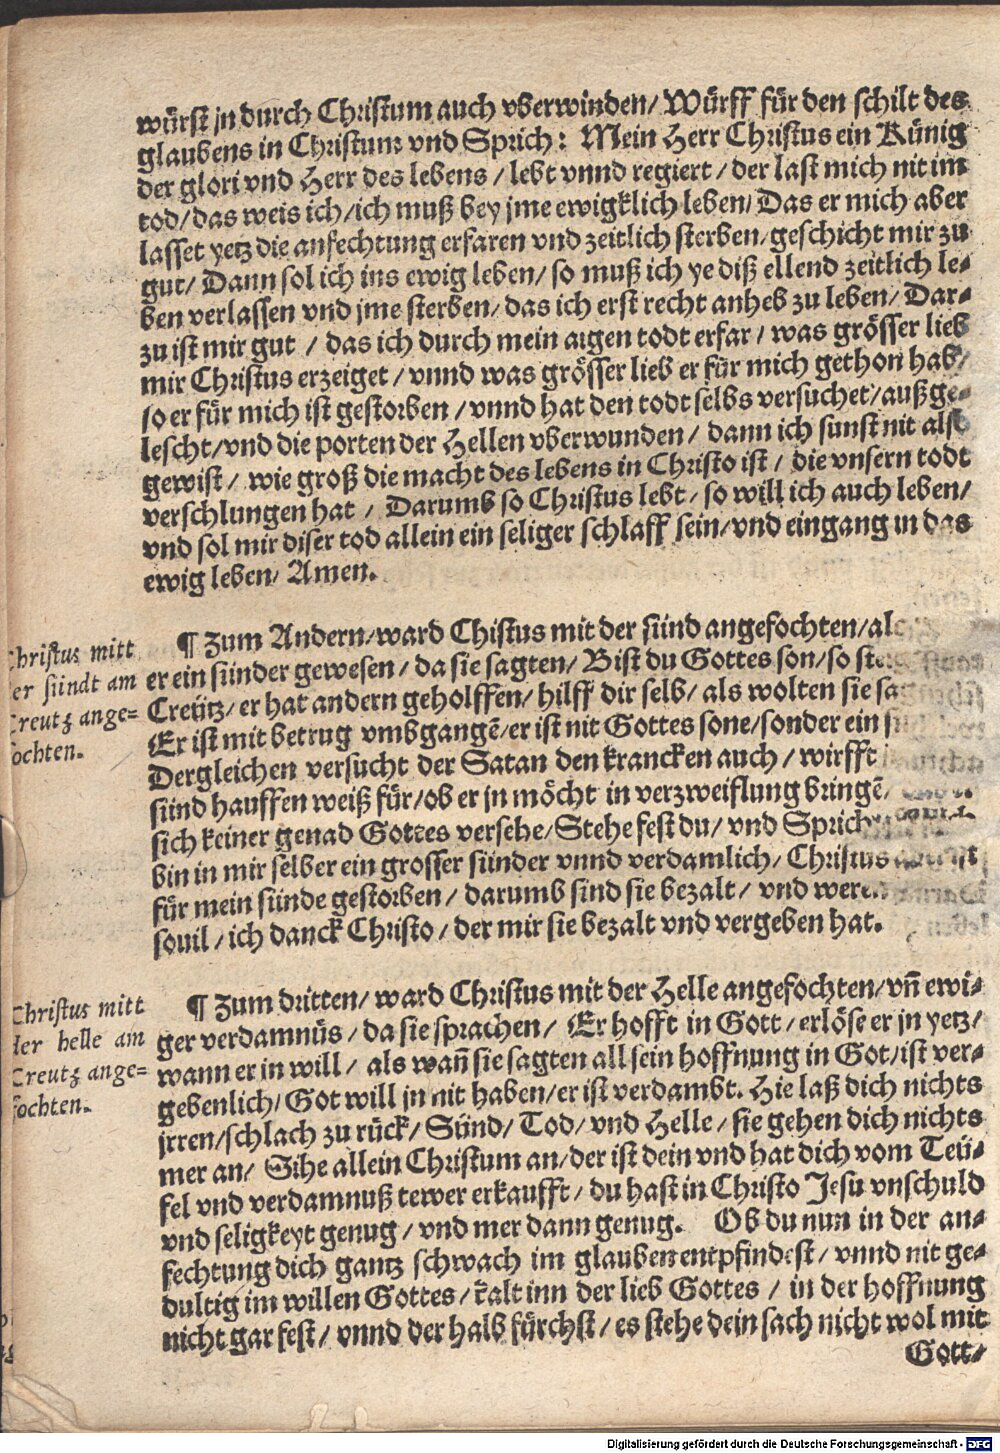 würst jn durch Christum auch vberwinden/ Würff für den schilt des
glaubens in Christum vnd Sprich: Mein Herr Christus ein Künig
der glori vnd Herr des lebens / lebt vnnd regiert / der last mich nit im
tod/ das weis ich/ ich muß bey jme ewigklich leben/ Das er mich aber
lasset yetz die anfechtung erfaren vnd zeitlich sterben/ geschicht mir zu
gut/ Dann sol ich ins ewig leben/ so muß ich ye diß ellend zeitlich le-
ben verlassen vnd jme sterben/ das ich erst recht anheb zu leben/ Dar-
zu ist mir gut / das ich durch mein aigen todt erfar / was grösser lieb
mir Christus erzeiget / vnnd was grösser lieb er für mich gethon hab/
so er für mich ist gestorben / vnnd hat den todt selbs versuchet/ außge-
lescht/ vnd die porten der Hellen vberwunden / dann ich sunst nit also
gewist / wie groß die macht des lebens in Christo ist / die vnsern todt
verschlungen hat / Darumb so Christus lebt / so will ich auch leben/
vnd sol mir diser tod allein ein seliger schlaff sein/ vnd eingang in das
ewig leben/ Amen.
¶ Zum Andern/ ward Chistus mit der sünd angefochten/ als
er ein sünder gewesen / da sie sagten / Bist du Gottes son/ so
Creütz/ er hat andern geholffen/ hilff dir selb/ als wolten sie
Er ist mit betrug vmbgangē/ er ist nit Gottes sone/ sonder ein
Dergleichen versucht der Satan den krancken auch / wirfft
sünd hauffen weiß für/ ob er jn möcht in verzweiflung bringē/
sich keiner genad Gottes versehe/ Stehe fest du/ vnd Sprich
bin in mir selber ein grosser sünder vnnd verdamlich/ Christus
für mein sünde gestorben / darumb sind sie bezalt / vnd
souil / ich danck Christo / der mir sie bezalt vnd vergeben hat.
Christus mitt
der sündt am
Creutz ange-
fochten.
¶ Zum dritten/ ward Christus mit der Helle angefochten/ vñ ewi-
ger verdamnüs / da sie sprachen / Er hofft in Gott / erlöse er jn yetz/
wann er in will / als wañ sie sagten all sein hoffnung in Got/ ist ver-
gebenlich/ Got will jn nit haben/ er ist verdambt. Hie laß dich nichts
jrren/ schlach zu rück/ Sünd/ Tod/ vnd Helle / sie gehen dich nichts
mer an/ Sihe allein Christum an/ der ist dein vnd hat dich vom Teü-
fel vnd verdamnuß tewer erkaufft / du hast in Christo Jesu vnschuld
vnd seligkeyt genug / vnd mer dann genug. Ob du nun in der an-
fechtung dich gantz schwach im glauben entpfindest / vnnd nit ge-
dultig im willen Gottes / kalt inn der lieb Gottes / in der hoffnung
nicht gar fest/ vnnd der halb fürchst/ es stehe dein sach nicht wol mit
Gott/
Christus mitt
der helle am
Creutz ange-
fochten.
Digitalisierung gefördert durch die Deutsche Forschungsgemeinschaft - DFG